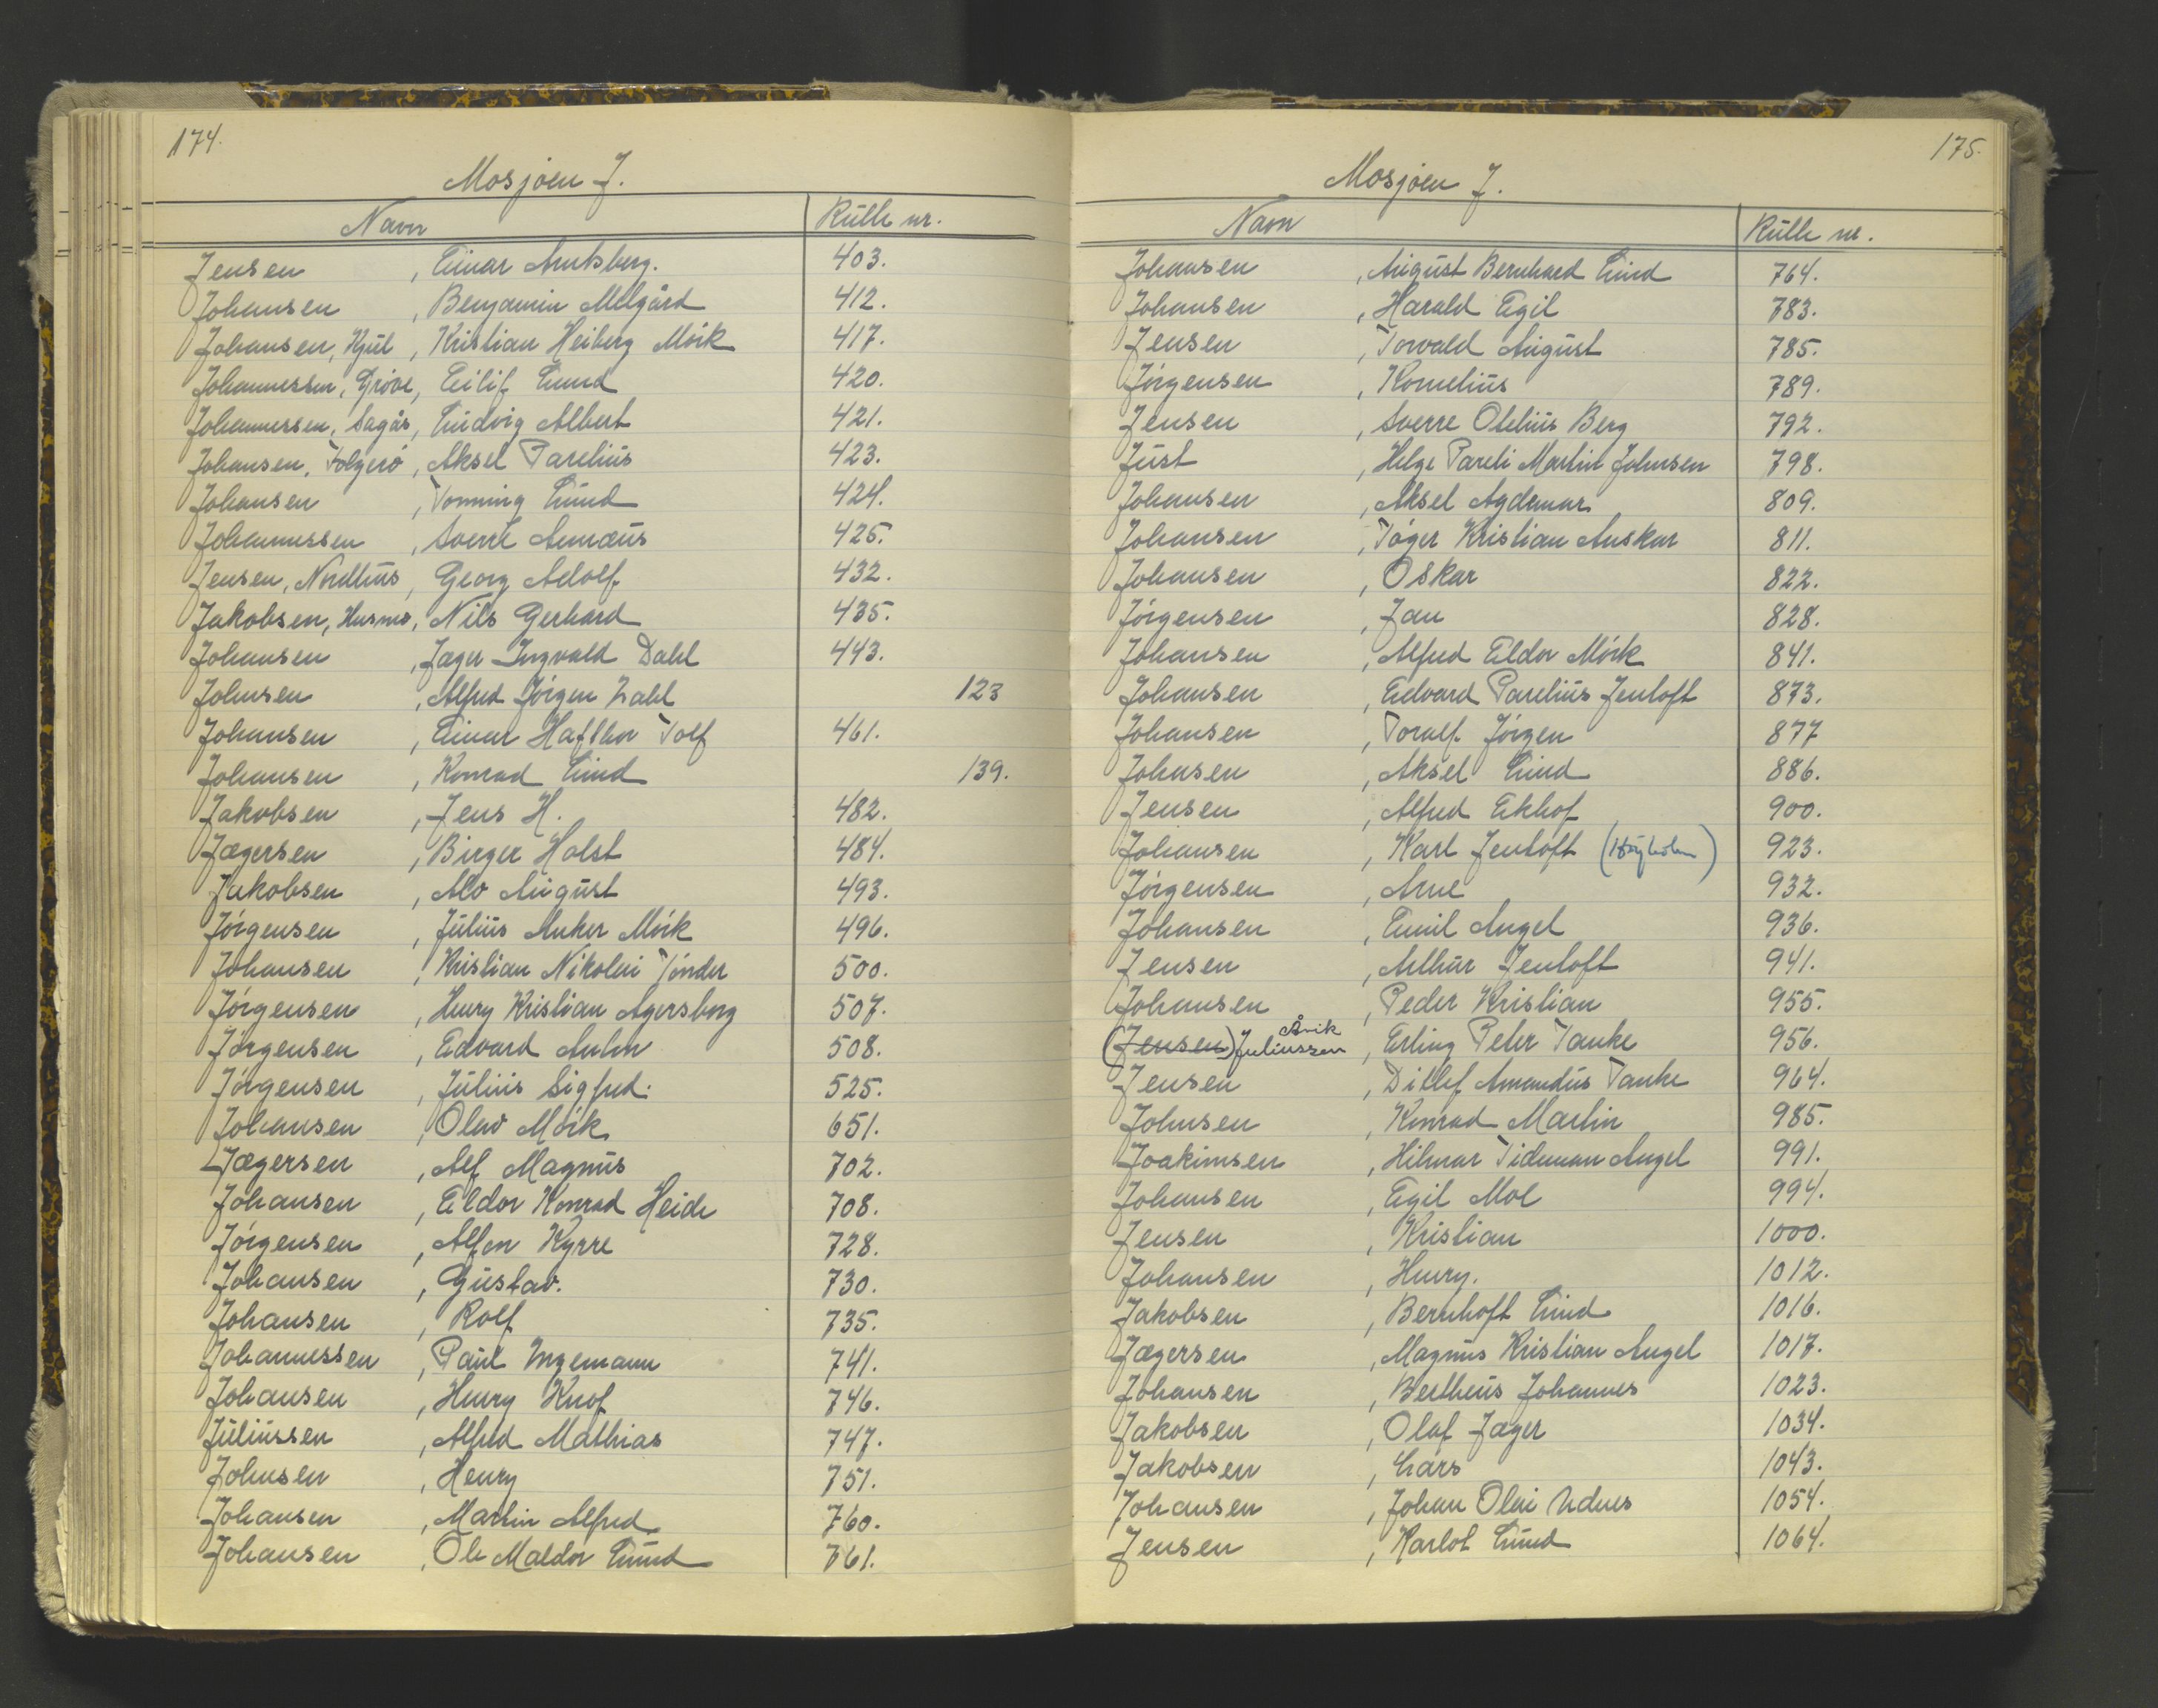 174.
Mosjøen J.
Navn Rulle nr.
Jensen , Einar Arntsberg. 403.
Johansen , Benjamin Melgård 412.
Johansen, Kjul , Kristian Heiberg Mörk 417.
Johannessen, Gröve, Eilif Lund 420.
Johannessen, Sagås, Ludvig Albert 421.
Johansen, Folgerö , Aksel Parelius 423.
Johansen , Tonning Lund 424.
Johannessen , Sverre 425.
Jensen, Nordhus , Georg Adolf 432.
Jakobsen, Husmo, Nils Gerhard 435.
Johansen , Jæger Ingvald Dahl 443.
Johnsen , Alfred Jörgen Zahl 123
Johansen , Einar Hafthor Tolf 461.
Johansen , Konrad Lind 139.
Jakobsen , Jens H. 482.
Jægersen , Birger Holst 484.
Jakobsen , Alv August 493.
Jörgensen , Julius Anker Mörk 496.
Johansen , Kristian Nikolai Tönder 500.
Jörgensen , Henry Kristian Agersborg 507.
Jörgensen , Edvard Anton 508.
Jörgensen , Julius Sigfred. 525.
Johansen , Olav Mörk 651.
Jægersen , Alf Magnus 702.
Johansen , Eldor Konrad Heide 708.
Jörgensen , Alfon Kyrre 728.
Johansen , Gustav. 730.
Johansen , Rolf 735.
Johannessen , Paul Ingemann 741.
Johansen , Henry Knof 746.
Juliussen , Alfred Mathias 747.
Johnsen , Henry 751.
Johansen , Martin Alfred 760.
Johansen , Ole Maldor Lund 761.
175.
Mosjøen J.
Navn Rulle nr.
Johansen , August Bernhard Lind 764.
Johansen , Harald Egil 783.
Jensen , Torvald August 785.
Jörgensen , Kornelius 789.
Jensen , Sverre Otelius Berg 792.
Just , Helge Pareli Martin Johnsen 798.
Johansen , Aksel Agdemar 809.
Johansen , Töger Kristian Anskar 811.
Johansen , Oskar 822.
Jörgensen , Jan 828.
Johansen , Alfred Eldor Mörk 841.
Johansen , Edvard Parelius Jentoft 873.
Johansen , Toralf Jörgen 877
Johnsen , Aksel Lind 886.
Jensen , Alfred Ekhof 900.
Johansen , Karl Jentoft (Höyholm) 923.
Jörgensen , Arne 932.
Johansen , Emil Angel 936.
Jensen , Arthur Jentoft 941.
Johansen , Peder Kristian 955.
(Jensen) Juliussen Åvik , Erling Peter Tanke 956.
Jensen , Ditlef Amandus Tanke 964.
Johnsen , Konrad Martin 985.
Joakimsen , Hilmar Tideman Angel 991.
Johansen , Egil Moe 994.
Jensen , Kristian 1000.
Johansen , Henry. 1012.
Jakobsen , Bernhoft Lind 1016.
Jægersen , Magnus Kristian Angel 1017.
Johansen , Bertheus Johannes 1023.
Jakobsen , Olaf Jæger 1034.
Jakobsen , Lars 1043.
Johansen , Johan Olai Udnes 1054.
Jensen , Karlot Lund 1064.